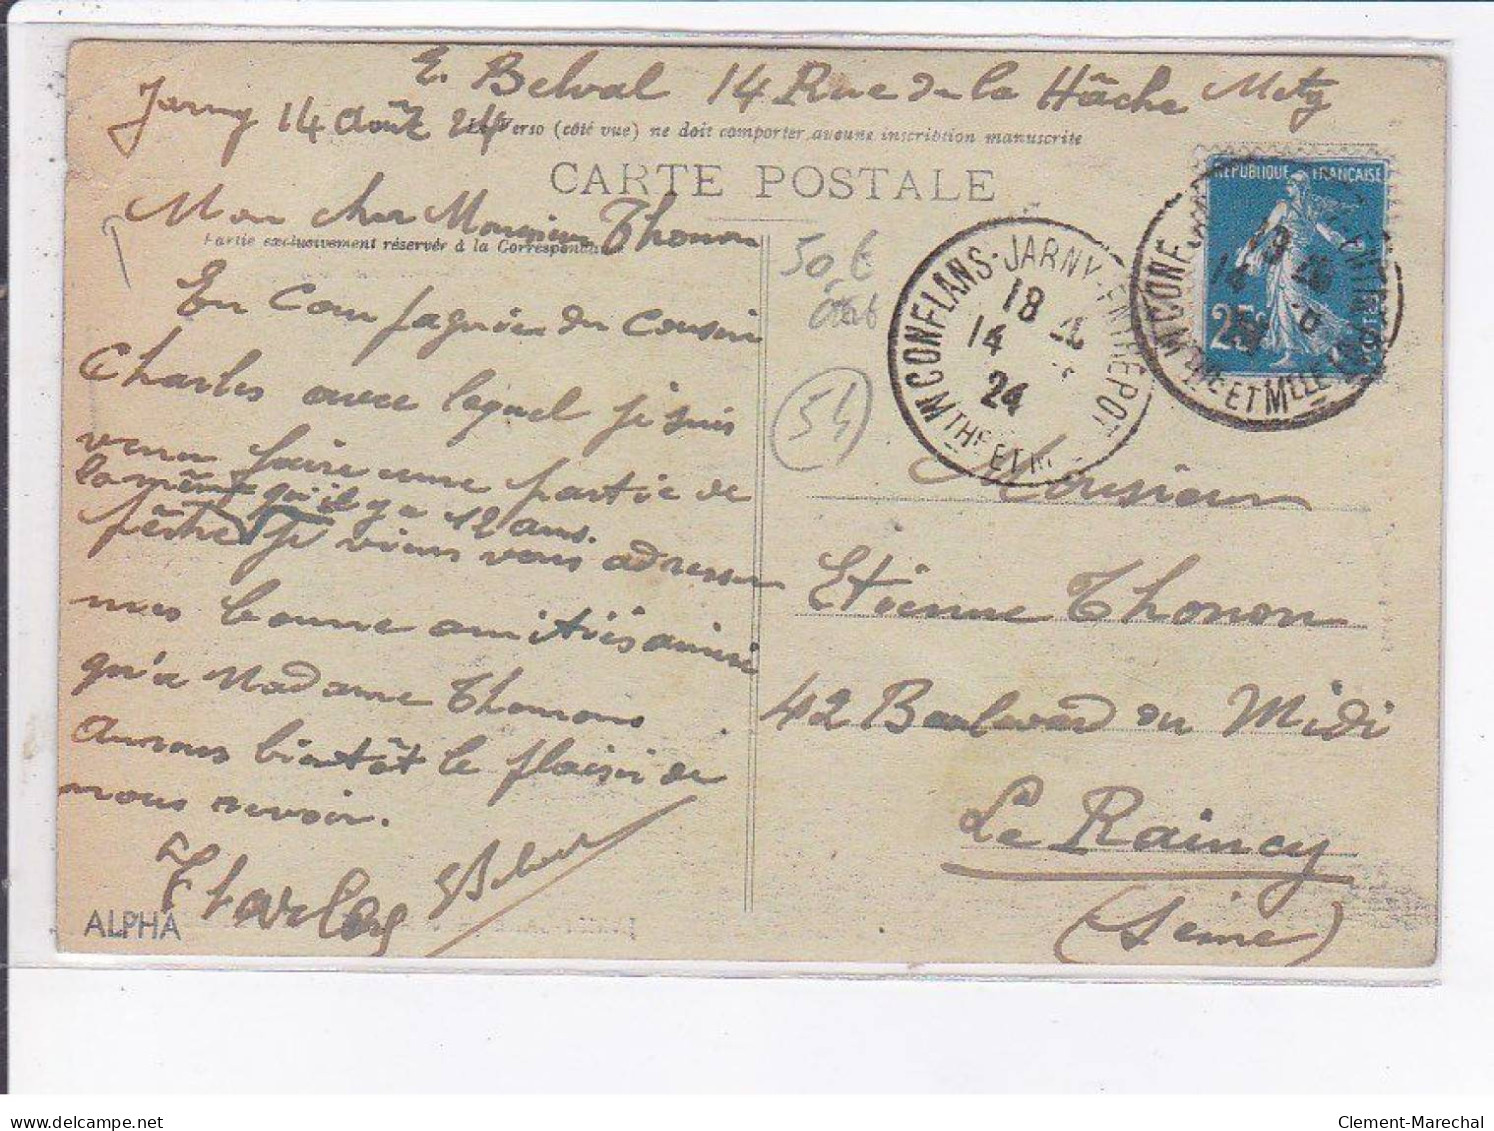 E. Belval 14 Rue de la Hâche Metz
Jarny 14 août 24
Le Verso (côté vue) ne doit comporter aucune inscription manuscrite
CARTE POSTALE
Mon cher Monsieur Thonon
Partie exclusivement réservée à la Correspondance
En compagnie du cousin
Charles avec lequel je suis
venu faire une partie de
la même qu'il y a 12 ans.
pêche je viens vous adresser
mes bonne amitiés ainsi
qu'a Madame Thonon
aurons bientôt le plaisir de
nous revoir.
Charles EBelval
ALPHA
50 €
54
CONFLANS-JARNY-ENTREPOT
18
14
24
MTHE ET M
REPUBLIQUE FRANÇAISE
25c
CONF
MTHE ET MELLE
Monsieur
Etienne Thonon
42 Boulevard du Midi
Le Raincy
(Seine)
Clement-Marechal